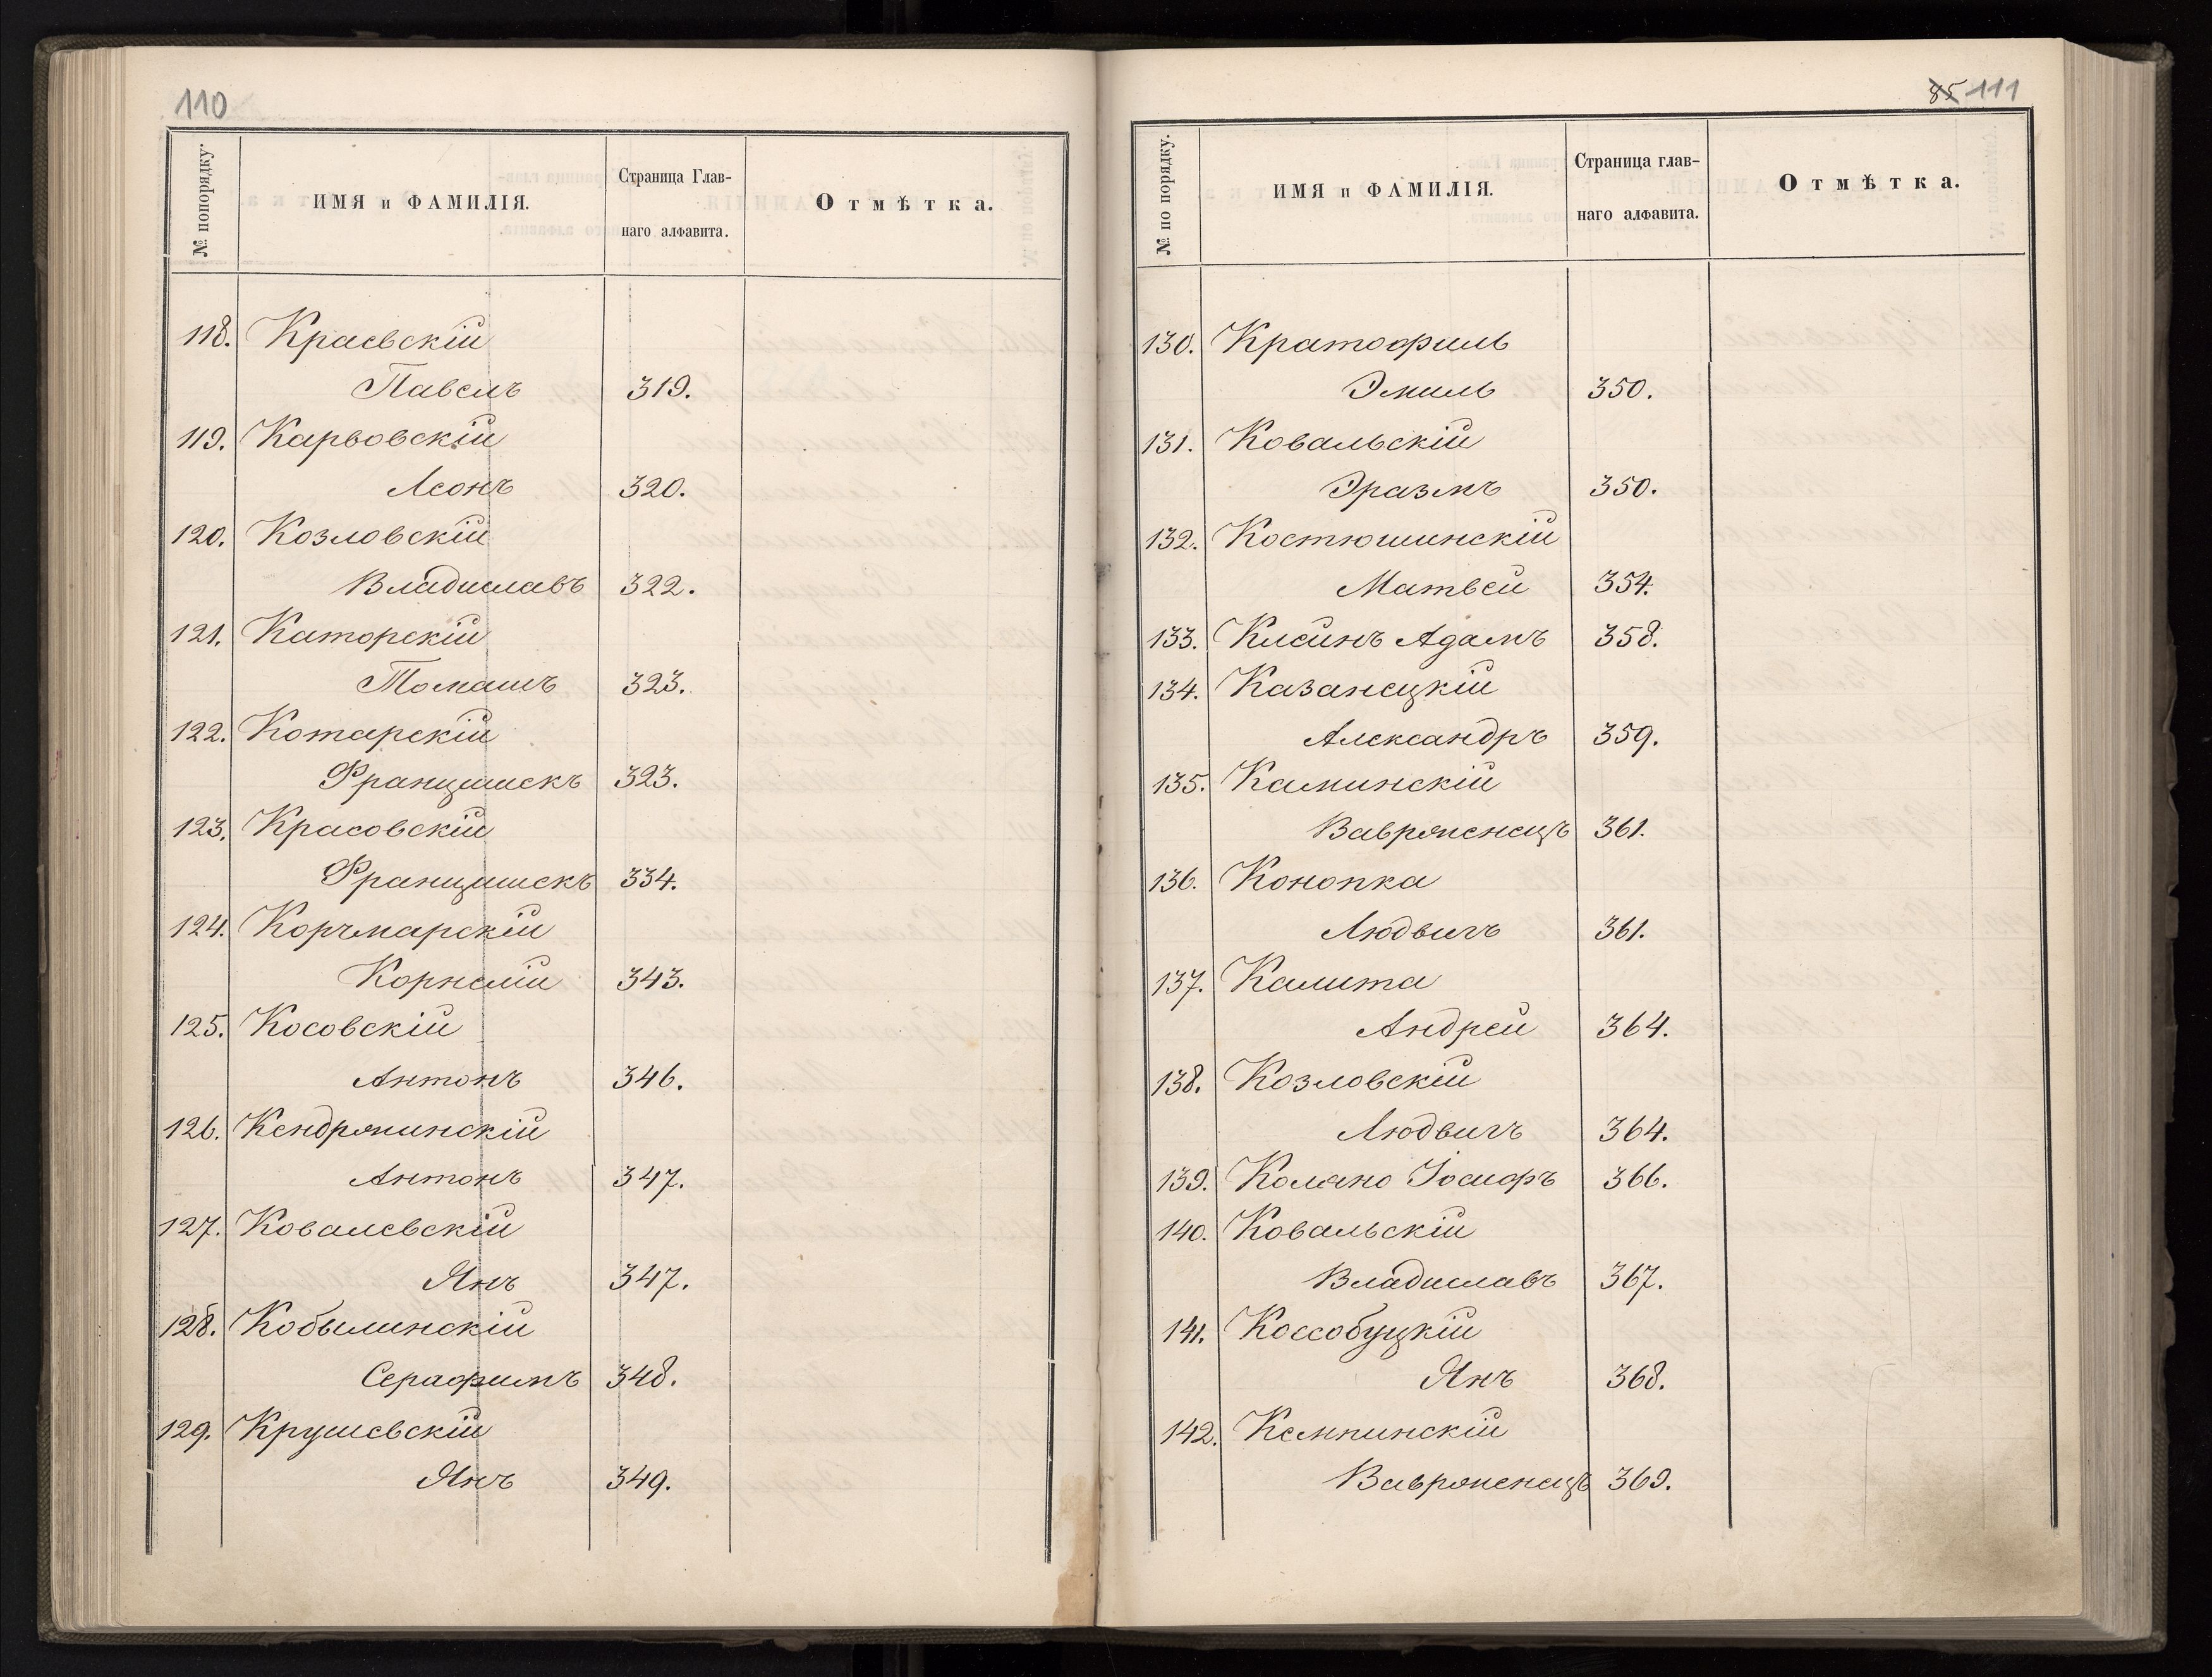 110
№ по порядку.
ИМЯ и ФАМИЛІЯ.
Страница Глав-
наго алфавита.
Отмѣтка.
118. Краевскій
Павелъ 319.
119. Карвовскій
Леонъ 320.
120. Козловскій
Владиславъ 322.
121. Каторскій
Томашъ 323.
122. Котарскій
Францишекъ 323.
123. Красовскій
Францишекъ 334.
124. Корчмарскій
Корнелій 343.
125. Косовскій
Антонъ 346.
126. Кендржинскій
Антонъ 347.
127. Ковалевскій
Янъ 347.
128. Кобылинскій
Серафимъ 348.
129. Крушевскій
Янъ 349.
85 111
№ по порядку.
ИМЯ и ФАМИЛІЯ.
Страница глав-
наго алфавита.
Отмѣтка.
130. Кратофиль
Эмиль 350.
131. Ковальскій
Эразмъ 350.
132. Костюшинскій
Матвей 354.
133. Клейнъ Адамъ 358.
134. Казанецкій
Александръ 359.
135. Каминскій
Вавржененцъ 361.
136. Конопка
Людвигъ 361.
137. Калита
Андрей 364.
138. Козловскій
Людвигъ 364.
139. Коляно Іосифъ 366.
140. Ковальскій
Владиславъ 367.
141. Коссобуцкій
Янъ 368.
142. Кемпинскій
Вавржененцъ 369.